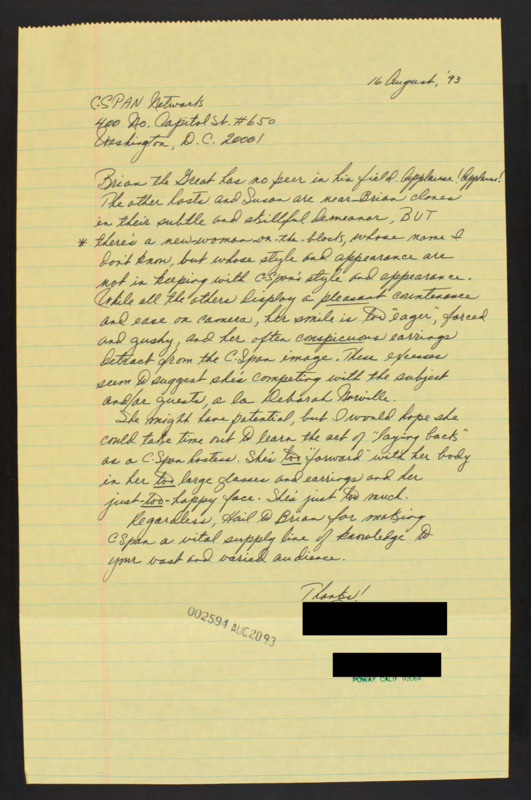 16 August, '93
C-SPAN Networks
400 No. Capitol St. #650
Washington, D.C. 20001
Brian the Great has no peer in his field. Applause! Applause!
The other hosts and Susan are near-Brian clones
in their subtle and skillful demeanor, BUT
* there's a new-woman-on-the-block, whose name I
don't know, but whose style and appearance are
not in keeping with C-Span's style and appearance.
While all the others display a pleasant countenance
and ease on camera, her smile is too "eager", forced
and gushy, and her often conspicuous earrings
detract from the C-Span image. These excesses
seem to suggest she's competing with the subject
and/or guests, a la Deborah Norville.
She might have potential, but I would hope she
could take time out to learn the art of "laying back"
as a C-Span hostess. She's too "forward" with her body
in her too large glasses and earrings and her
just-too-happy face. She's just too much.
Regardless, Hail to Brian for making
C-Span a vital supply line of knowledge to
your vast and varied audience.
Thanks!
002594 AUG2093
POWAY, CALIF 92064